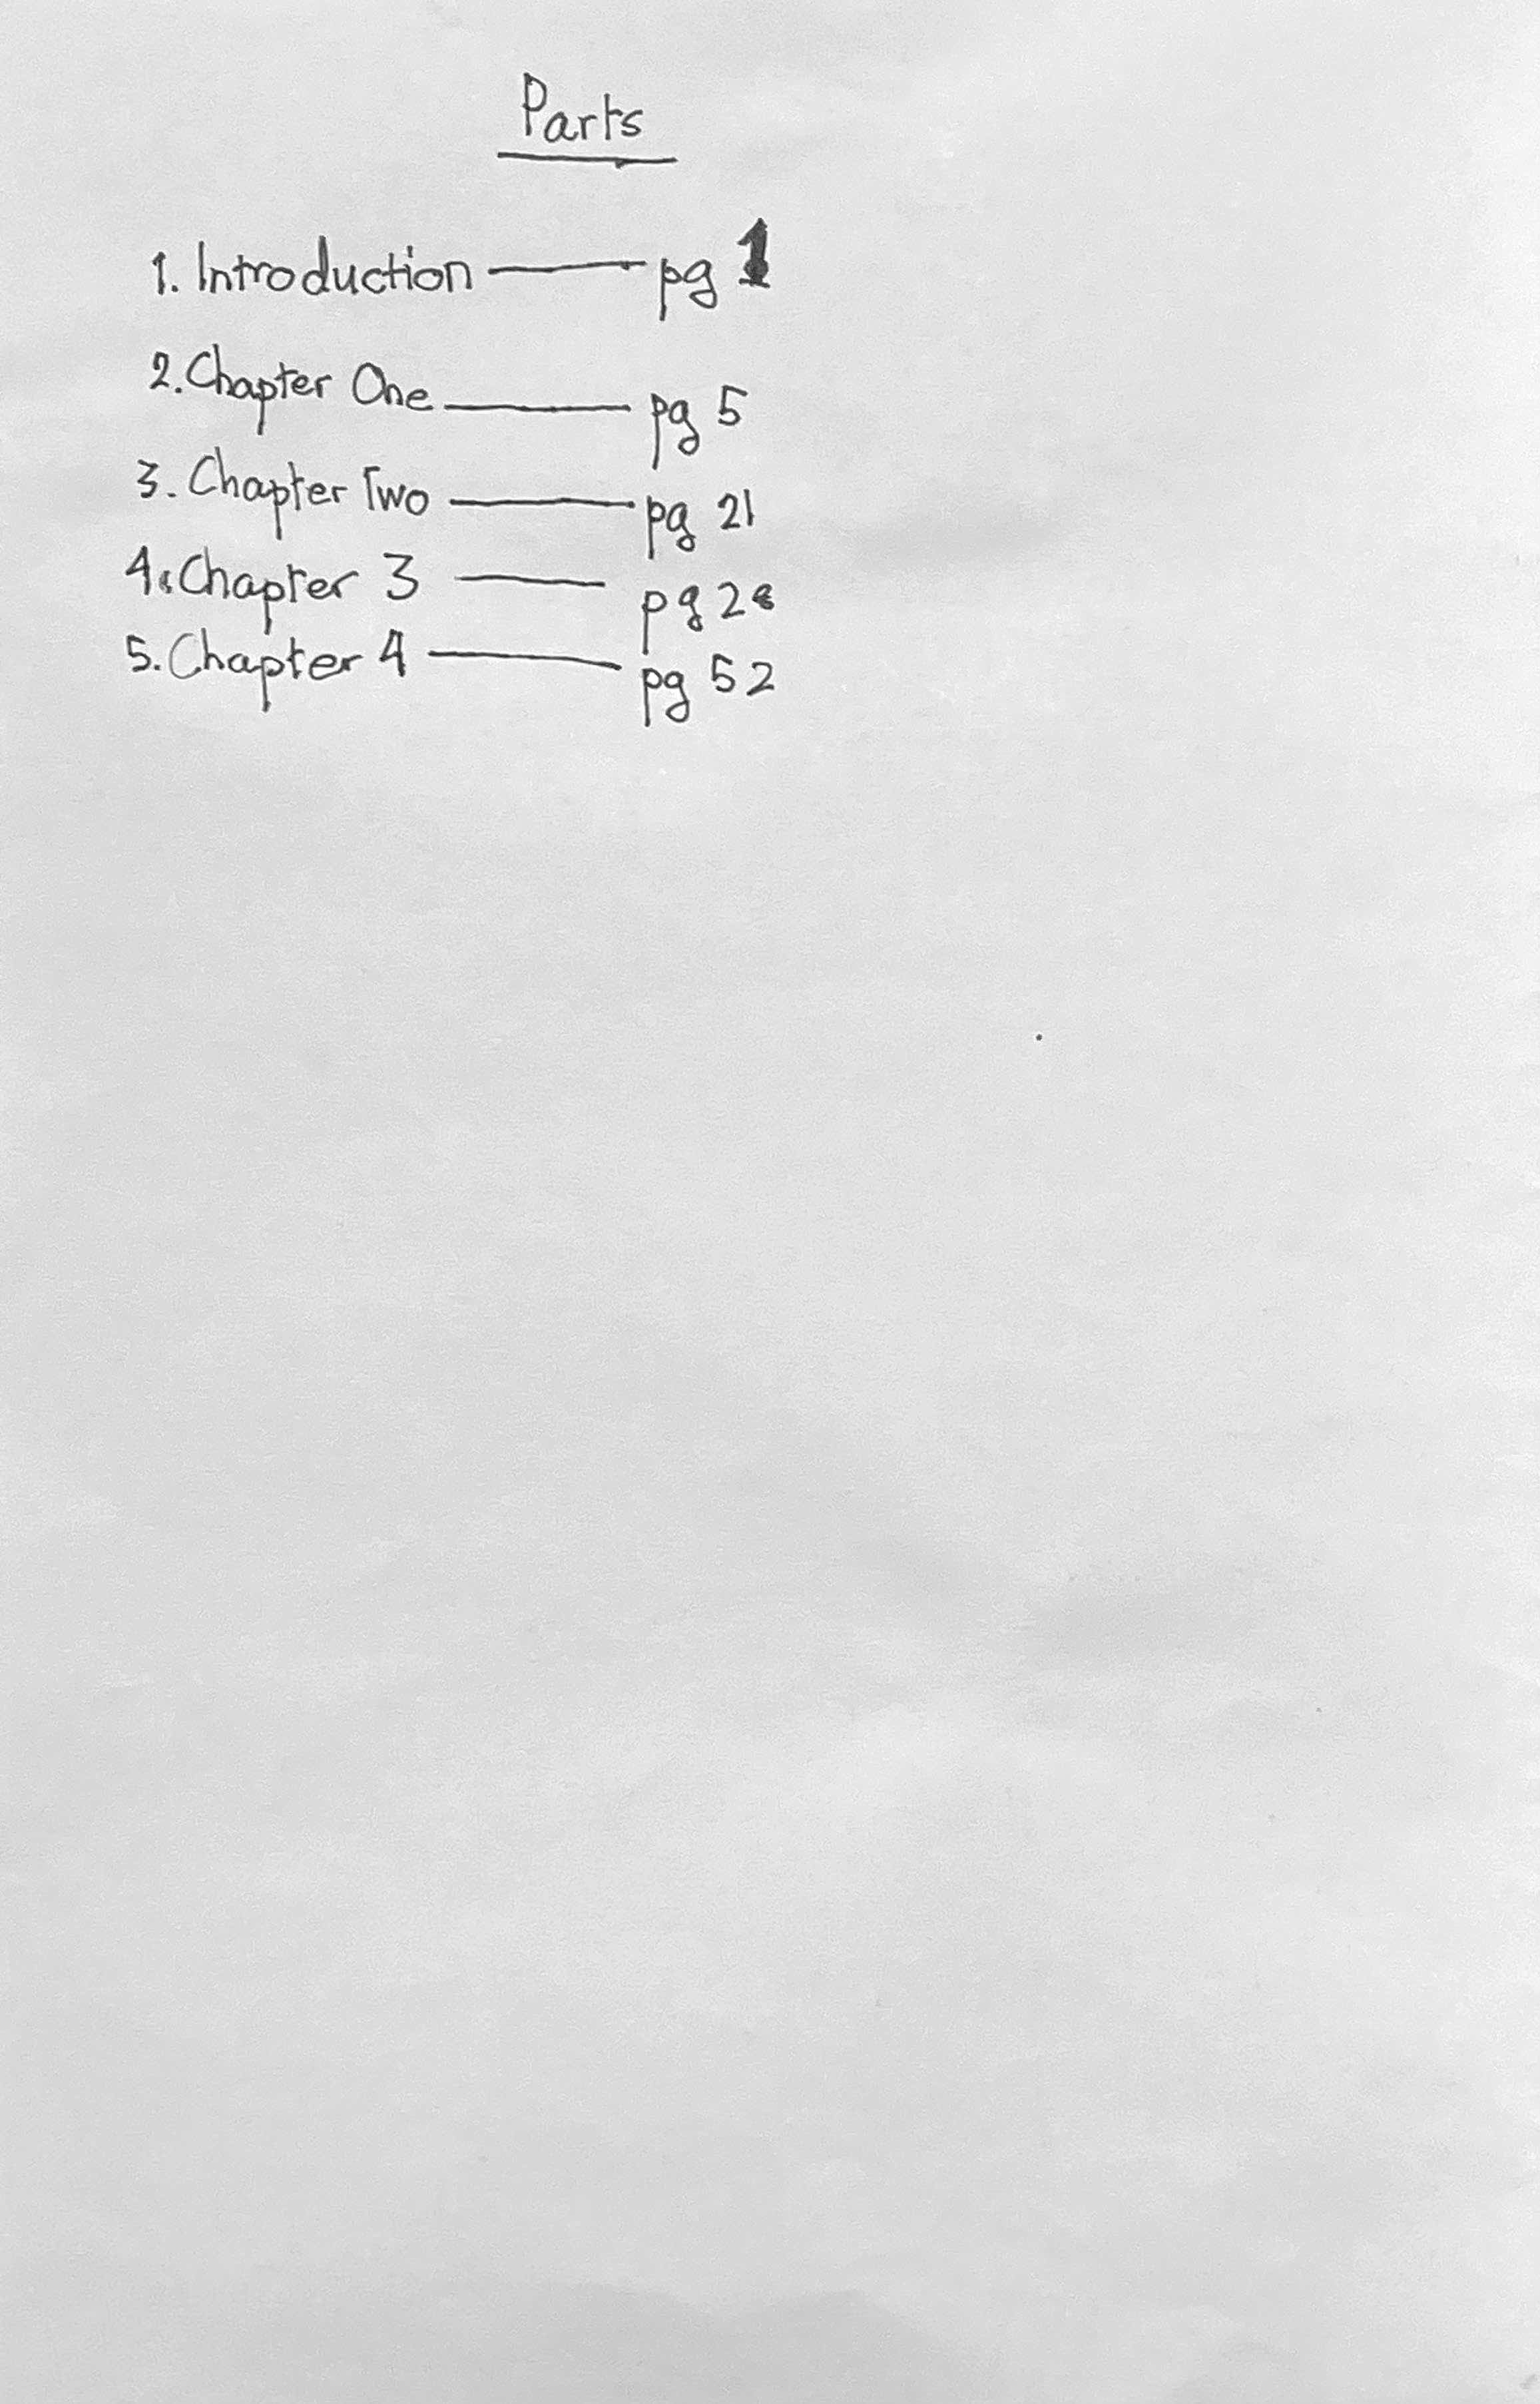 Parts
1. Introduction — pg 1
2. Chapter One — pg 5
3. Chapter Two — pg 21
4. Chapter 3 — pg 28
5. Chapter 4 — pg 52